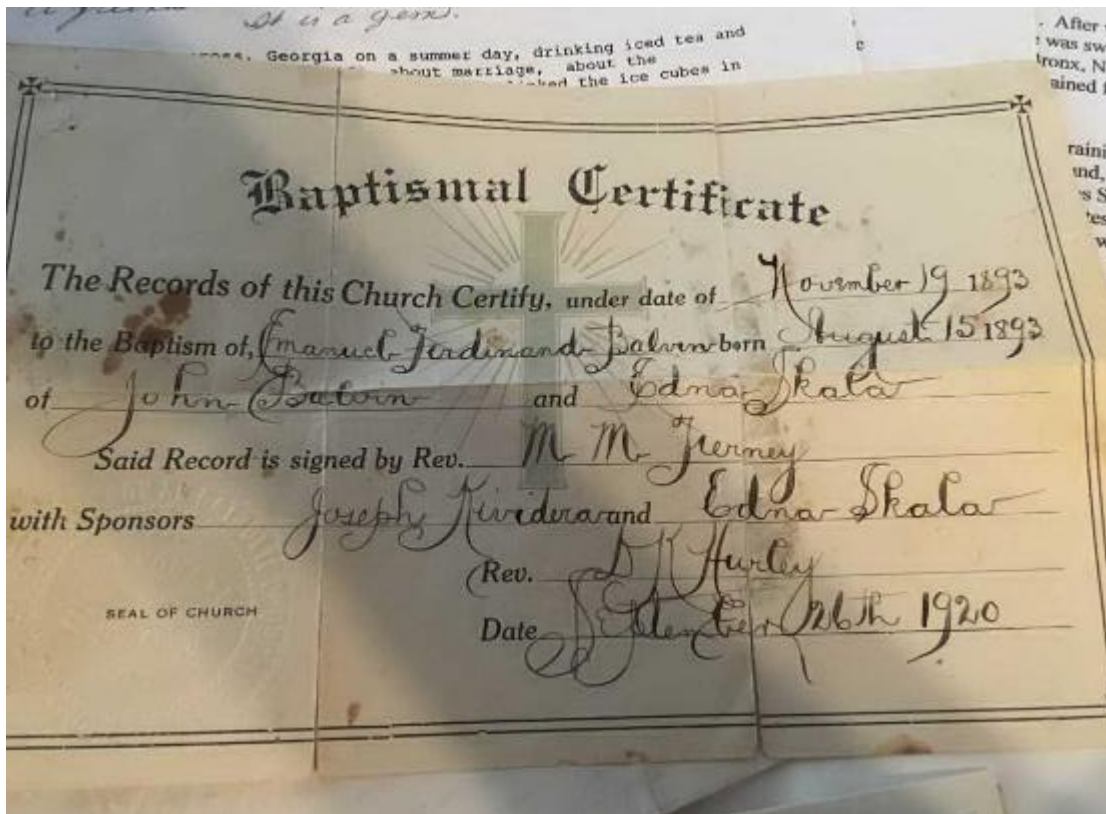 It is a gem.
Georgia on a summer day, drinking iced tea and
about marriage, about the
the ice cubes in
. After
was sw
ronx, N
ained
raini
und,
's S
Baptismal Certificate
The Records of this Church Certify, under date of November 19 1893
to the Baptism of, Emanuel Ferdinand Balvin born August 15 1893
of John Balvin and Edna Skala
Said Record is signed by Rev. M M Tierney
with Sponsors Joseph and Edna Skala
Rev. D J Hurley
SEAL OF CHURCH
Date September 26th 1920